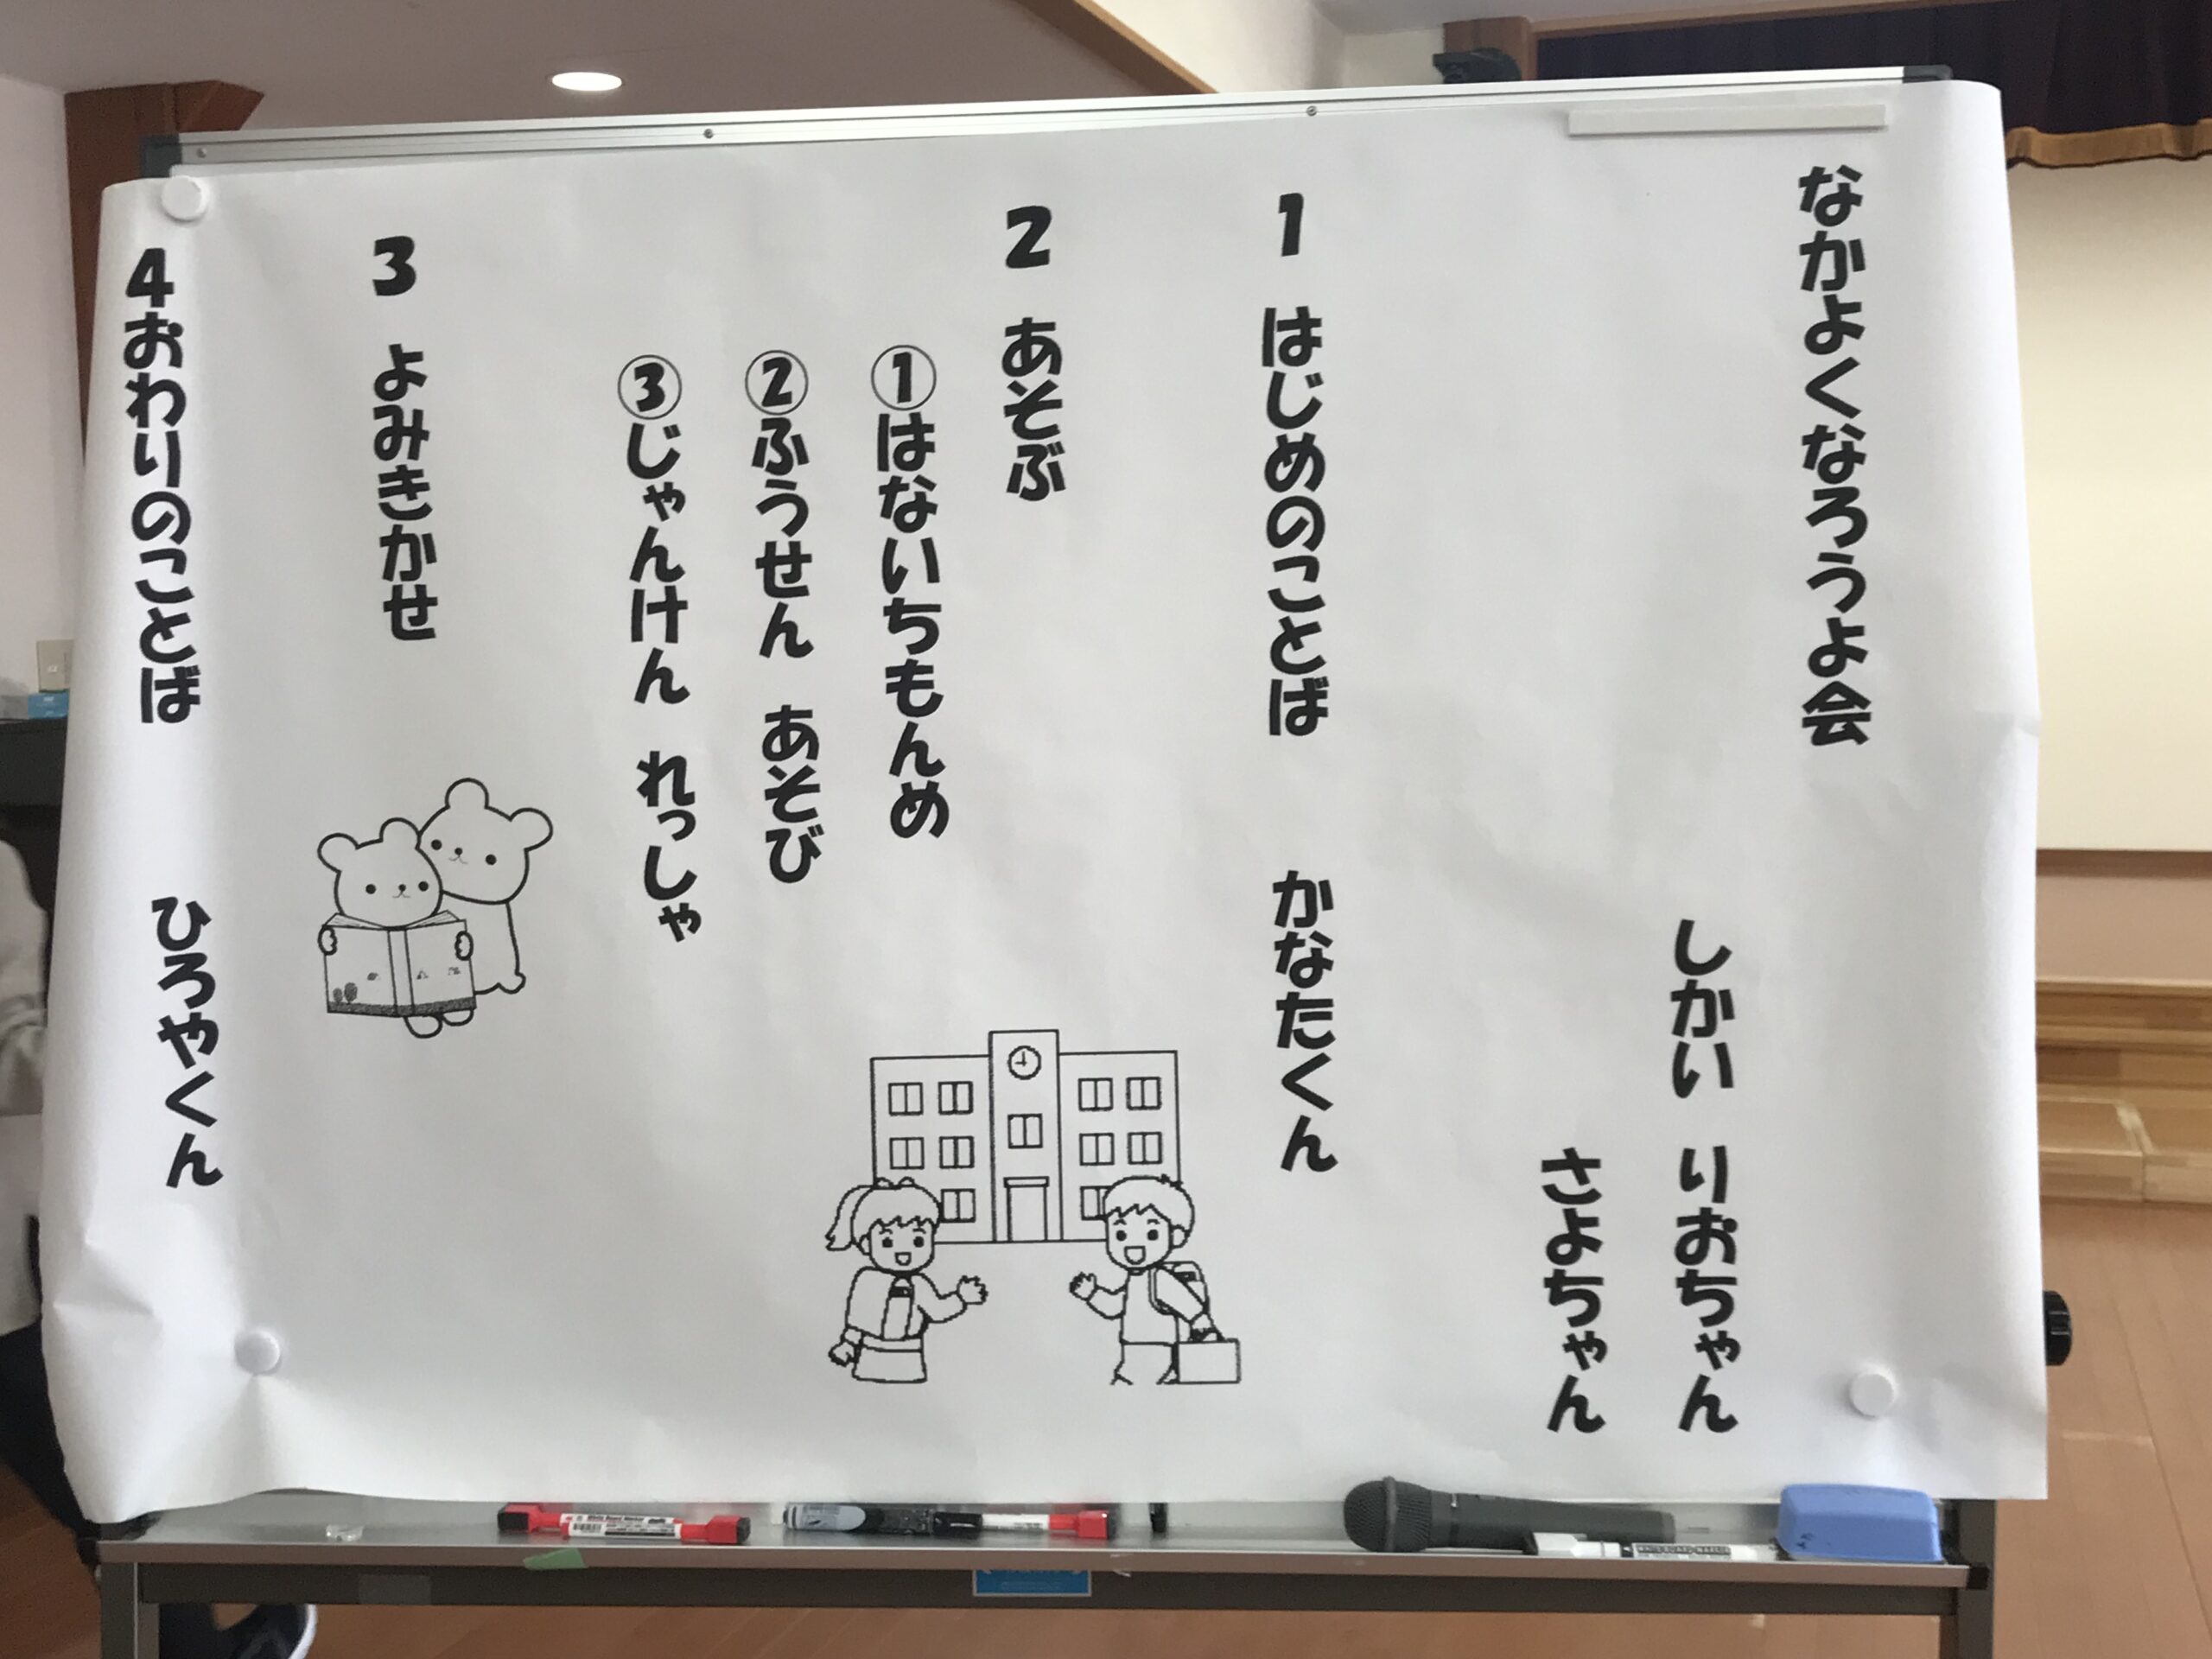 なかよくなろうよ会
しかい　りおちゃん
さよちゃん
1　はじめのことば　かなたくん
2　あそぶ
①はないちもんめ
②ふうせん　あそび
③じゃんけん　れっしゃ
3　よみきかせ
4おわりのことば　ひろやくん